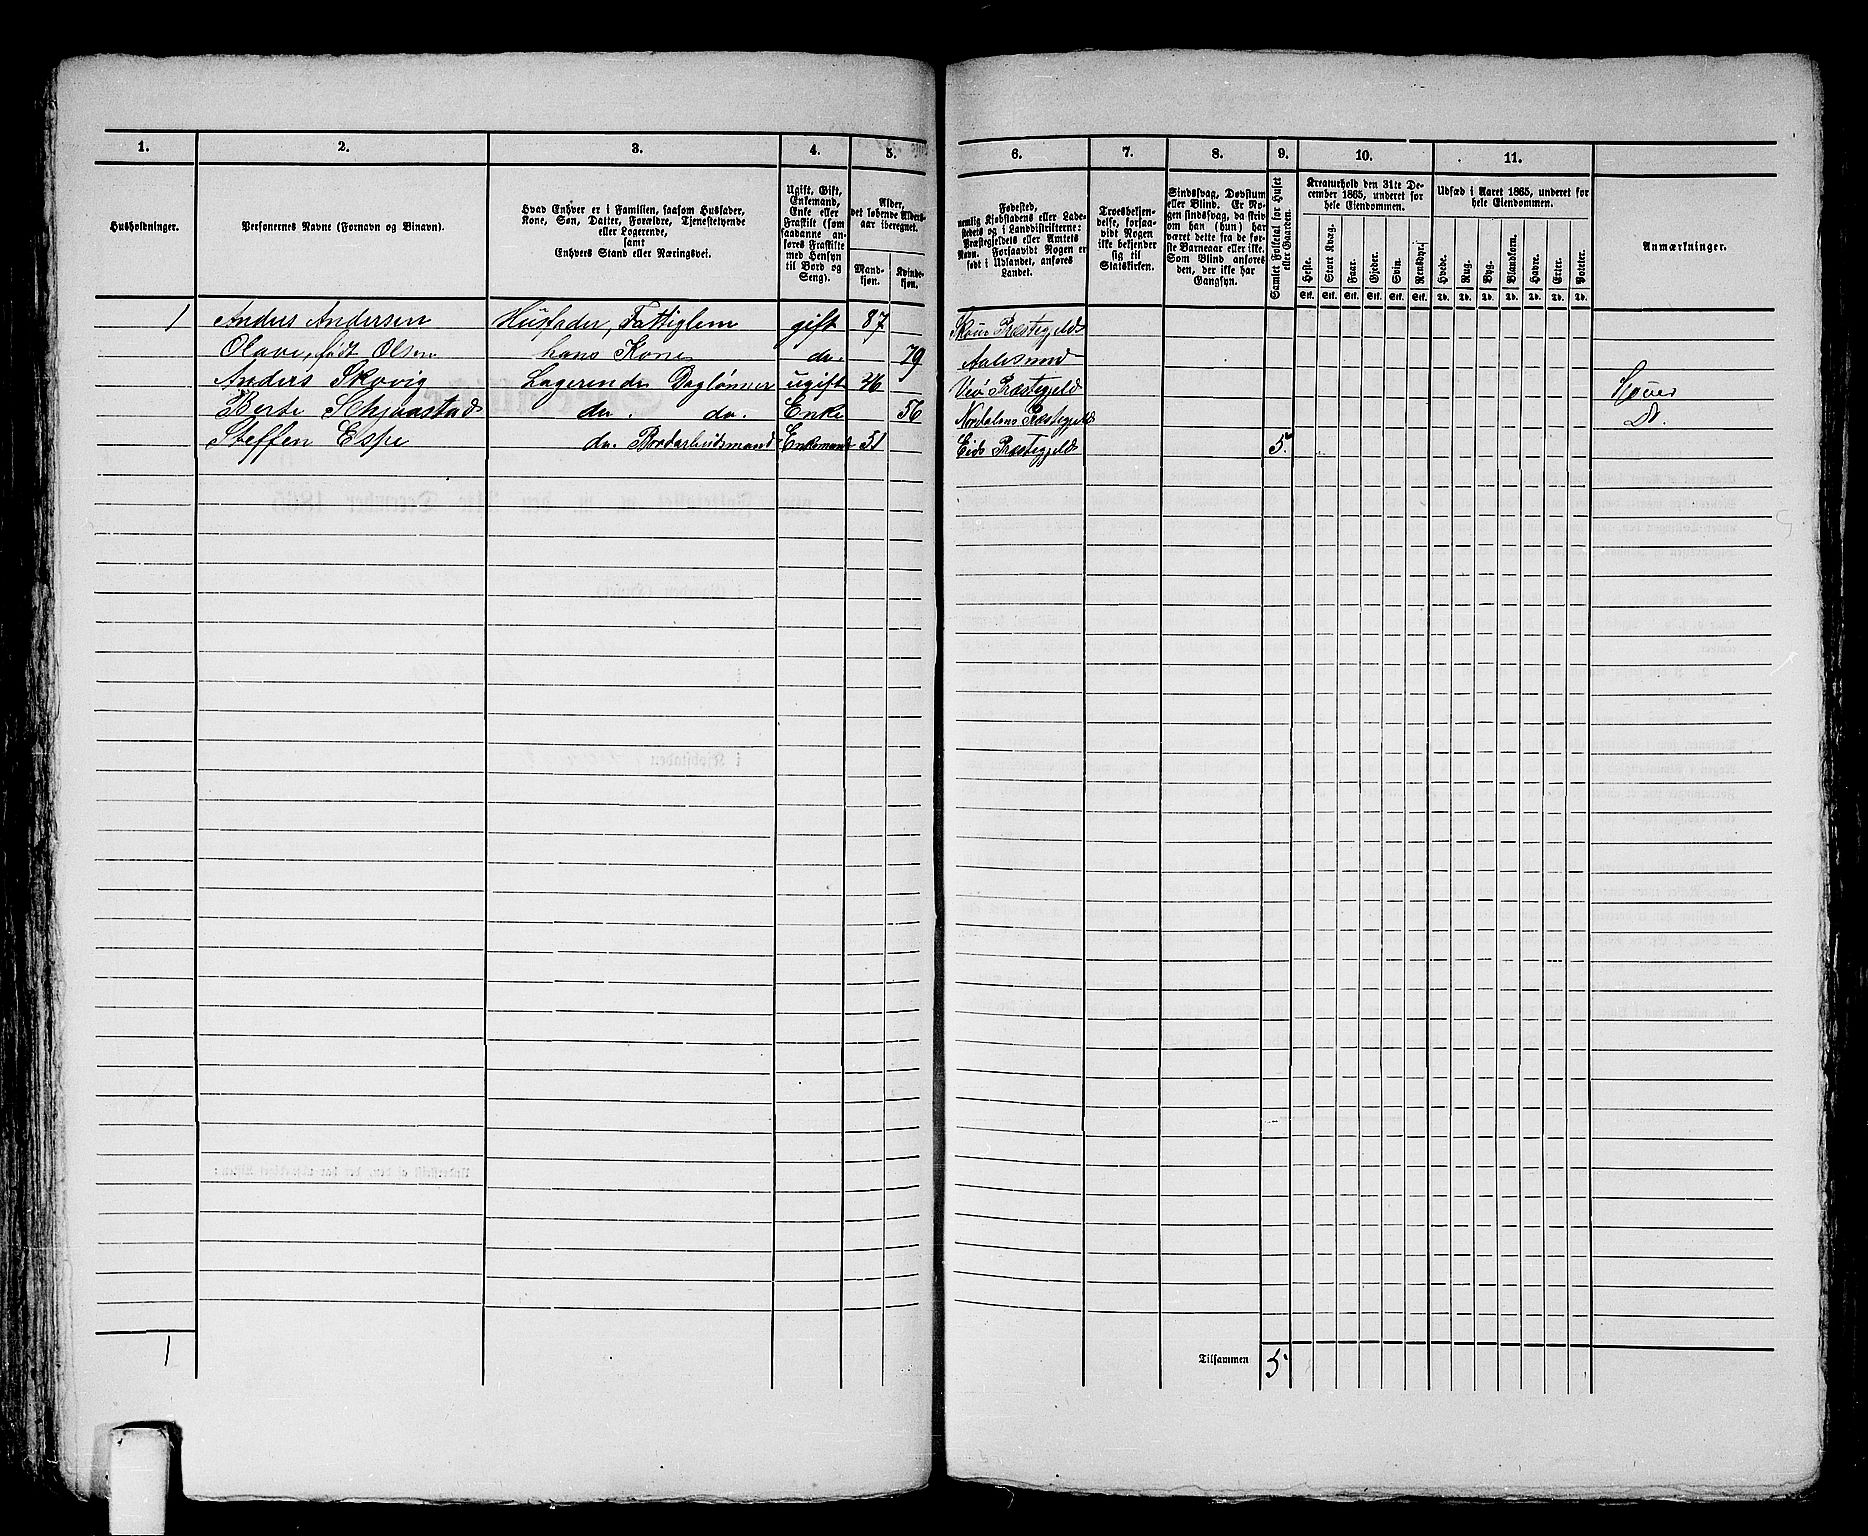 1. 2. 3. 4. 5. 6. 7. 8. 9. 10. 11.
Husholdninger.
Personernes Navne (Fornavn og Binavn).
Hvad Enhver er i Familien, saasom Husfader,
Kone, Søn, Datter, Forældre, Tjenestetyende
eller Logerende,
samt
Enhvers Stand eller Næringsvei.
Ugift, Gift,
Enkemand,
Enke eller
Fraskilt (som
saadanne an-
føres Fraskilte
med Hensyn
til Bord og
Seng).
Alder,
det løbende Alders-
aar iberegnet.
Mand-
kjøn.
Kvinde-
kjøn.
Fødested,
nemlig Kjøbstadens eller Lade-
stedets og i Landdistrikterne:
Præstegjeldets eller Amtets
Navn. Forsaavidt Nogen er
født i Udlandet, anføres
Landet.
Troesbekjen-
delse, forsaa-
vidt Nogen
ikke bekjender
sig til
Statskirken.
Sindssvag, Døvstum
eller Blind. Er No-
gen sindssvag, da skriv
om han (hun) har
været dette fra de før-
ste Barneaar eller ikke.
Som Blind anføres
den, der ikke har
Gangsyn.
Samlet Folketal for Huset
eller Gaarden.
Kreaturhold den 31te De-
cember 1865, underet for
hele Eiendommen.
Heste. Stort Kvæg. Faar. Gjeder. Svin. Rensdyr.
Stk. Stk. Stk. Stk. Stk. Stk.
Udsæd i Aaret 1865, underet for
hele Eiendommen.
Hvede. Rug. Byg. Blandkorn. Havre. Erter. Poteter.
Td. Td. Td. Td. Td. Td. Td.
Anmærkninger.
1 Anders Andersen Husfader, Fattiglem gift 87 Præstegjeld
Olave, født Olsen hans Kone do. 79 Aalesund
Anders Skovig Logerende Daglønner ugift 46 Veø Præstegjeld
Berte do. do. Enke 56 Nordalens Præstegjeld Do.
Steffen Espe do. Bordarbeidsmand Enkemand 51 Eids Præstegjeld 5.
1 Tilsammen 5